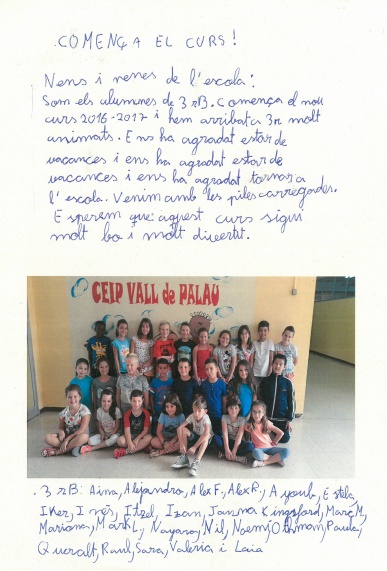 COMENÇA EL CURS!
Nens i nenes de l'escola:
Som els alumnes de 3rB. Comença el nou
curs 2016-2017 i hem arribat a 3r molt
animats. Ens ha agradat estar de
vacances i ens ha agradat estar de
vacances i ens ha agradat tornar a
l'escola. Venim amb les piles carregades.
Esperem que aquest curs sigui
molt bo i molt divertit.
CEIP VALL de PALAU
.3rB: Aina, Alejandro, Alex F., Alex R., Ayoub, Estela,
Iker, Inés, Itzel, Izan, Janna Kingsford, Marc M,
Mariona, Mark L, Nayara, Nil, Noemi, Othman, Paula,
Queralt, Raul, Sara, Valèria i Laia